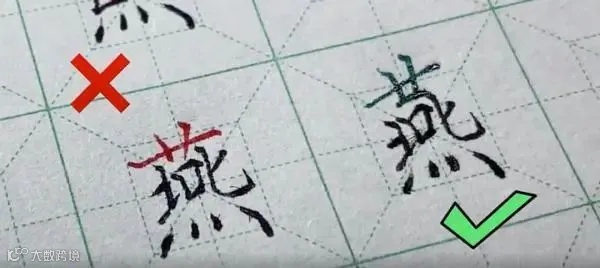 燕 燕
大数跨境